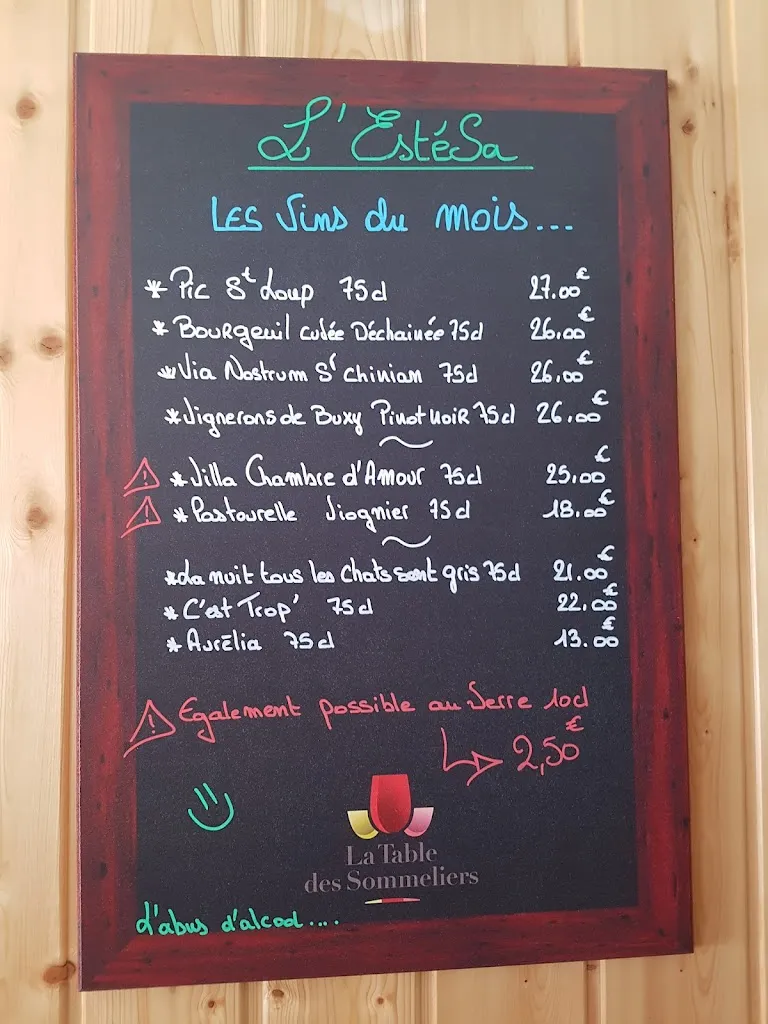 L'EstéSa
LES Vins du mois...
* Pic St Loup 75cl 27.00€
* Bourgeuil cuvée Déchainée 75cl 26.00€
* Via Nostrum St Chinian 75cl 26.00€
* Vignerons de Buxy Pinot Noir 75cl 26.00€
~
⚠ * Villa Chambre d'Amour 75cl 25.00€
⚠ * Pastourelle Viognier 75cl 18.00€
~
* La nuit tous les chats sont gris 75cl 21.00€
* C'est Trop' 75cl 22.00€
* Aurélia 75cl 13.00€
⚠ Egalement possible au Verre 10cl
↳ 2,50€
La Table
des Sommeliers
L'abus d'alcool....